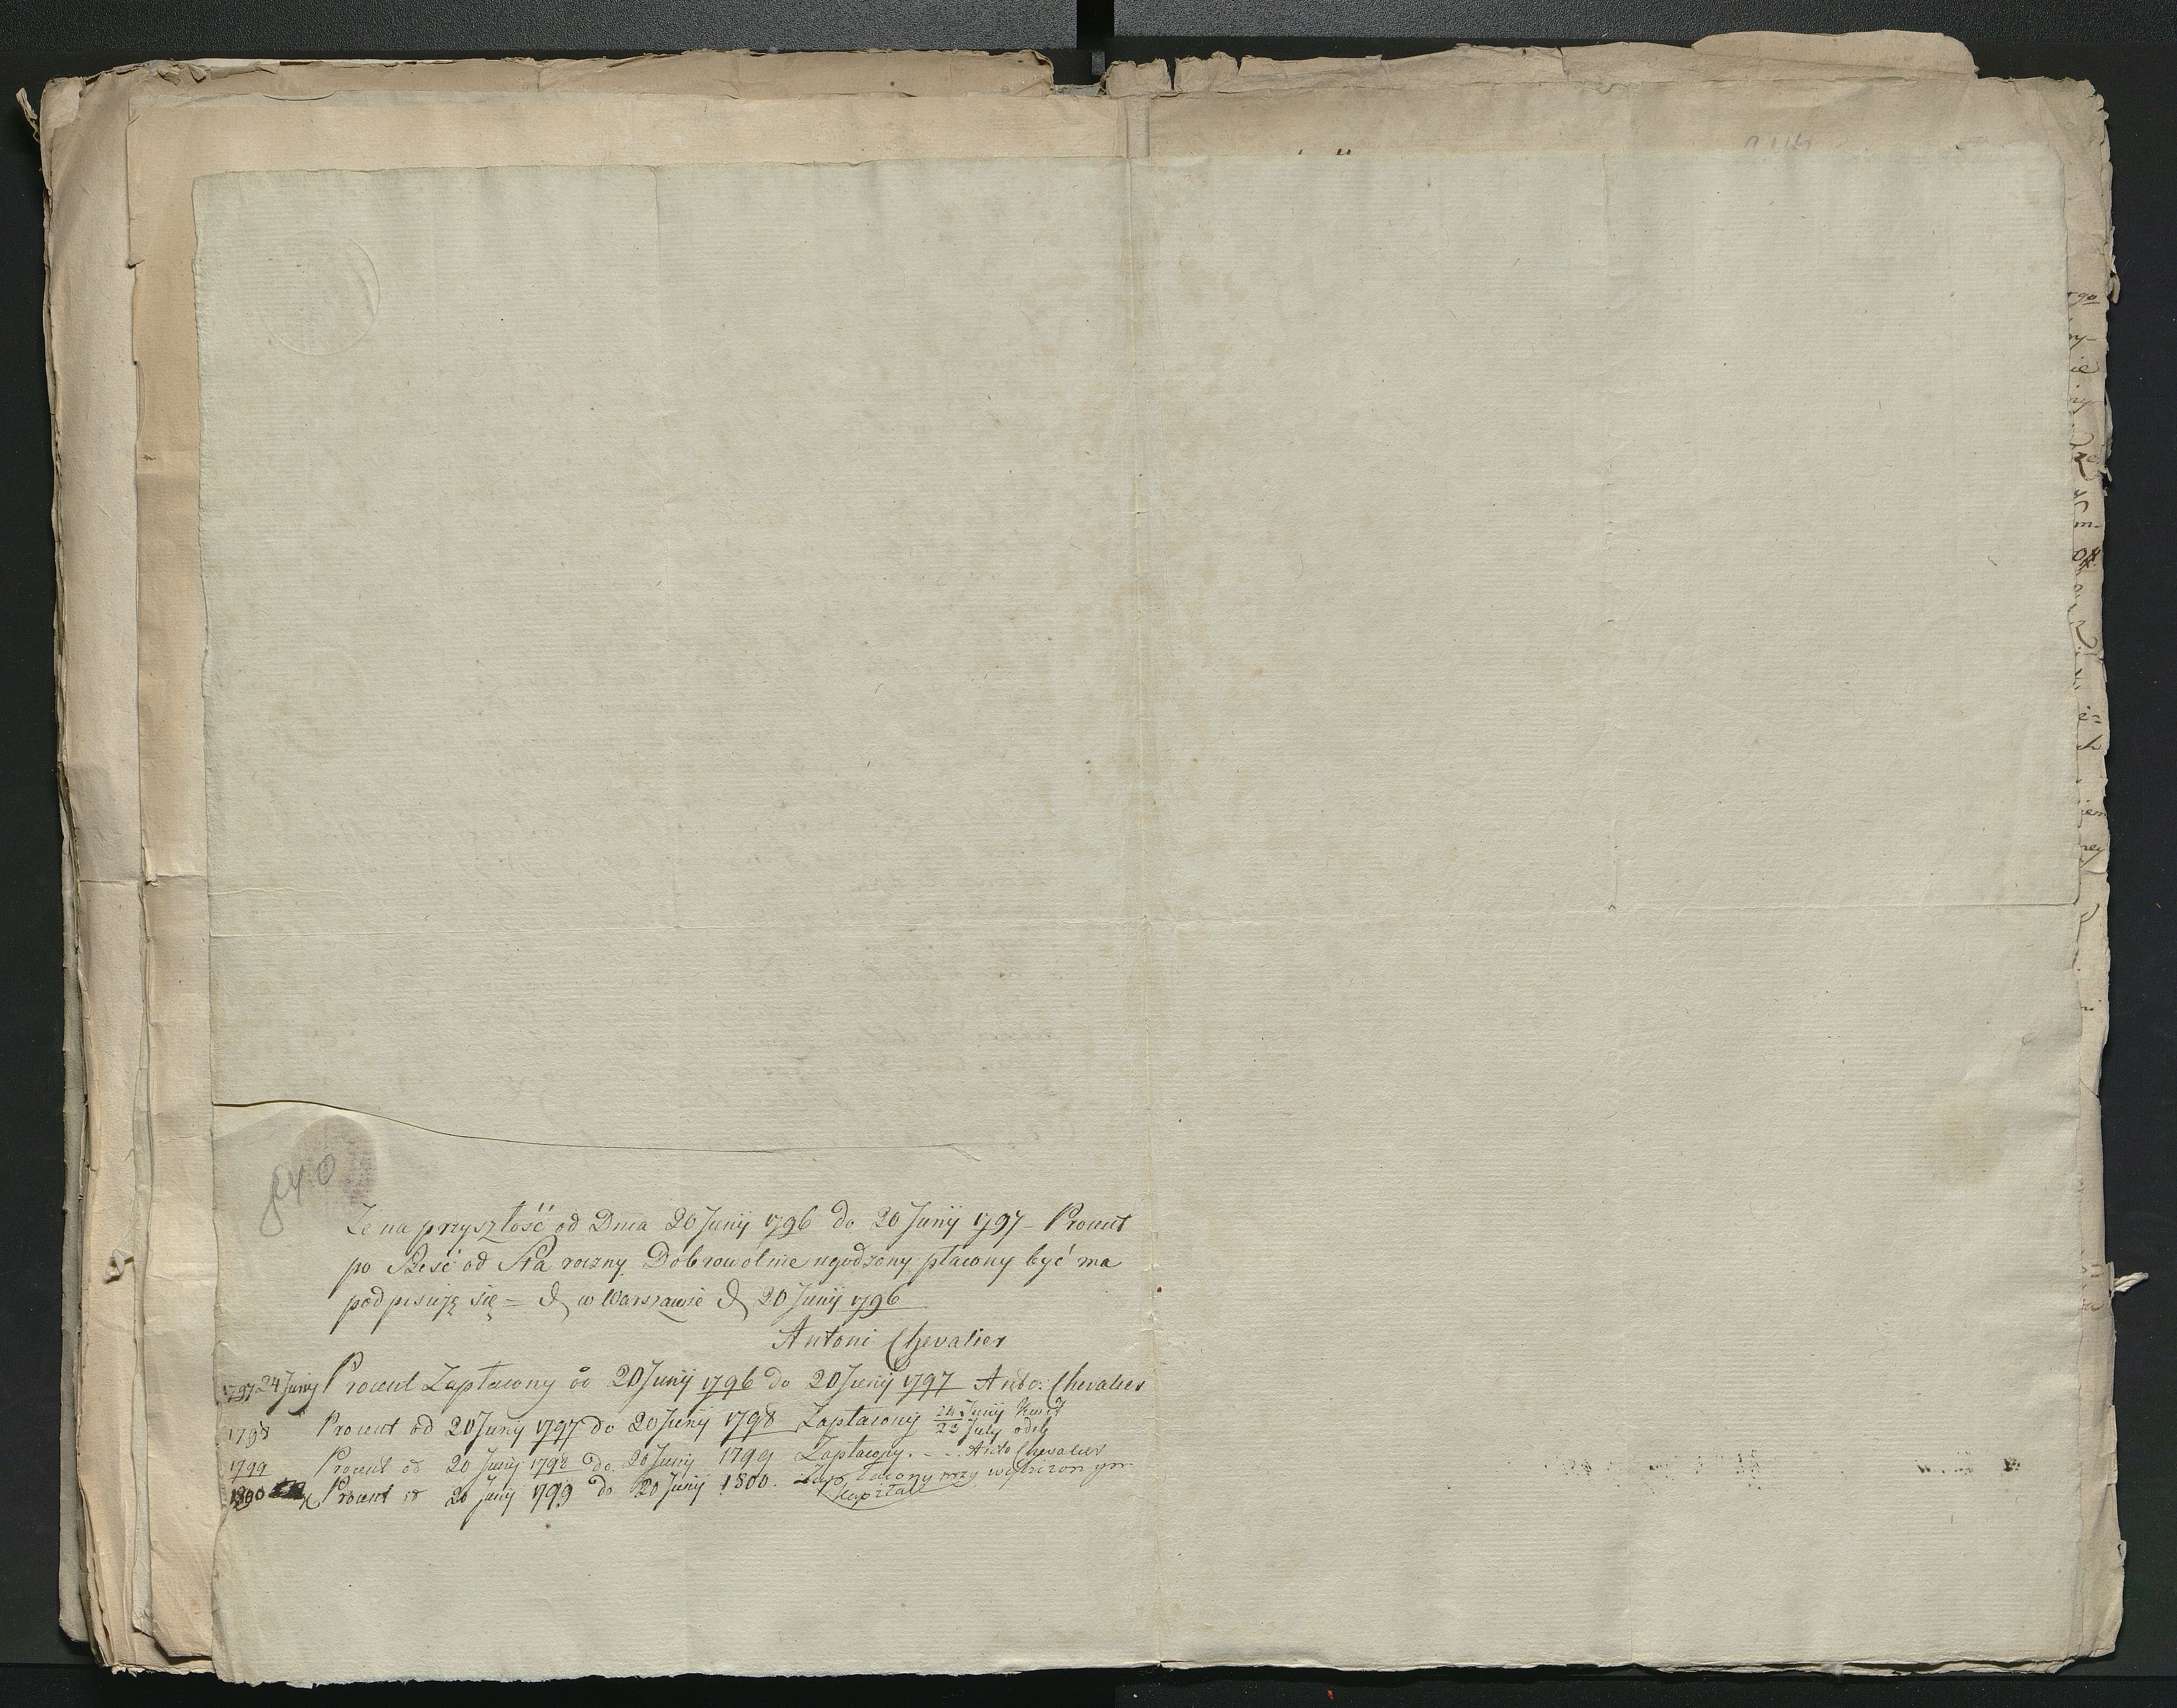 840
Że na przyszłość od Dnia 20 Junij 1796 do 20 Junij 1797 - Procent
po Sześć od Sta roczny Dobrowolnie ugodzony płacony być ma
podpisuję się = d w Warszawie d 20 Junij 1796
Antoni Chevalier
1797 24 Junij Procent Zapłacony od 20 Junij 1796 do 20 Junij 1797 Anto: Chevalier
1798 Procent od 20 Junij 1797 do 20 Junij 1798 Zapłacony 24 Junij Kwit
23 July
1799 Procent od 20 Junij 1798 do 20 Junij 1799 Zapłacony. - - Anto Chevalier
1800 Procent od 20 Junij 1799 do 20 Junij 1800. Zapłacony przy
Kapitale